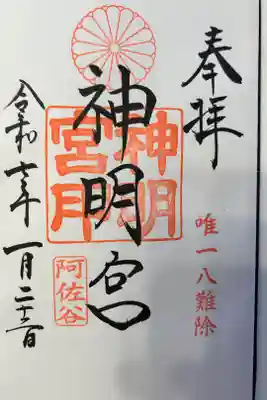 奉拝
唯一八難除
神明宮
神明
宮印
阿佐谷
令和 年 一月二十 日